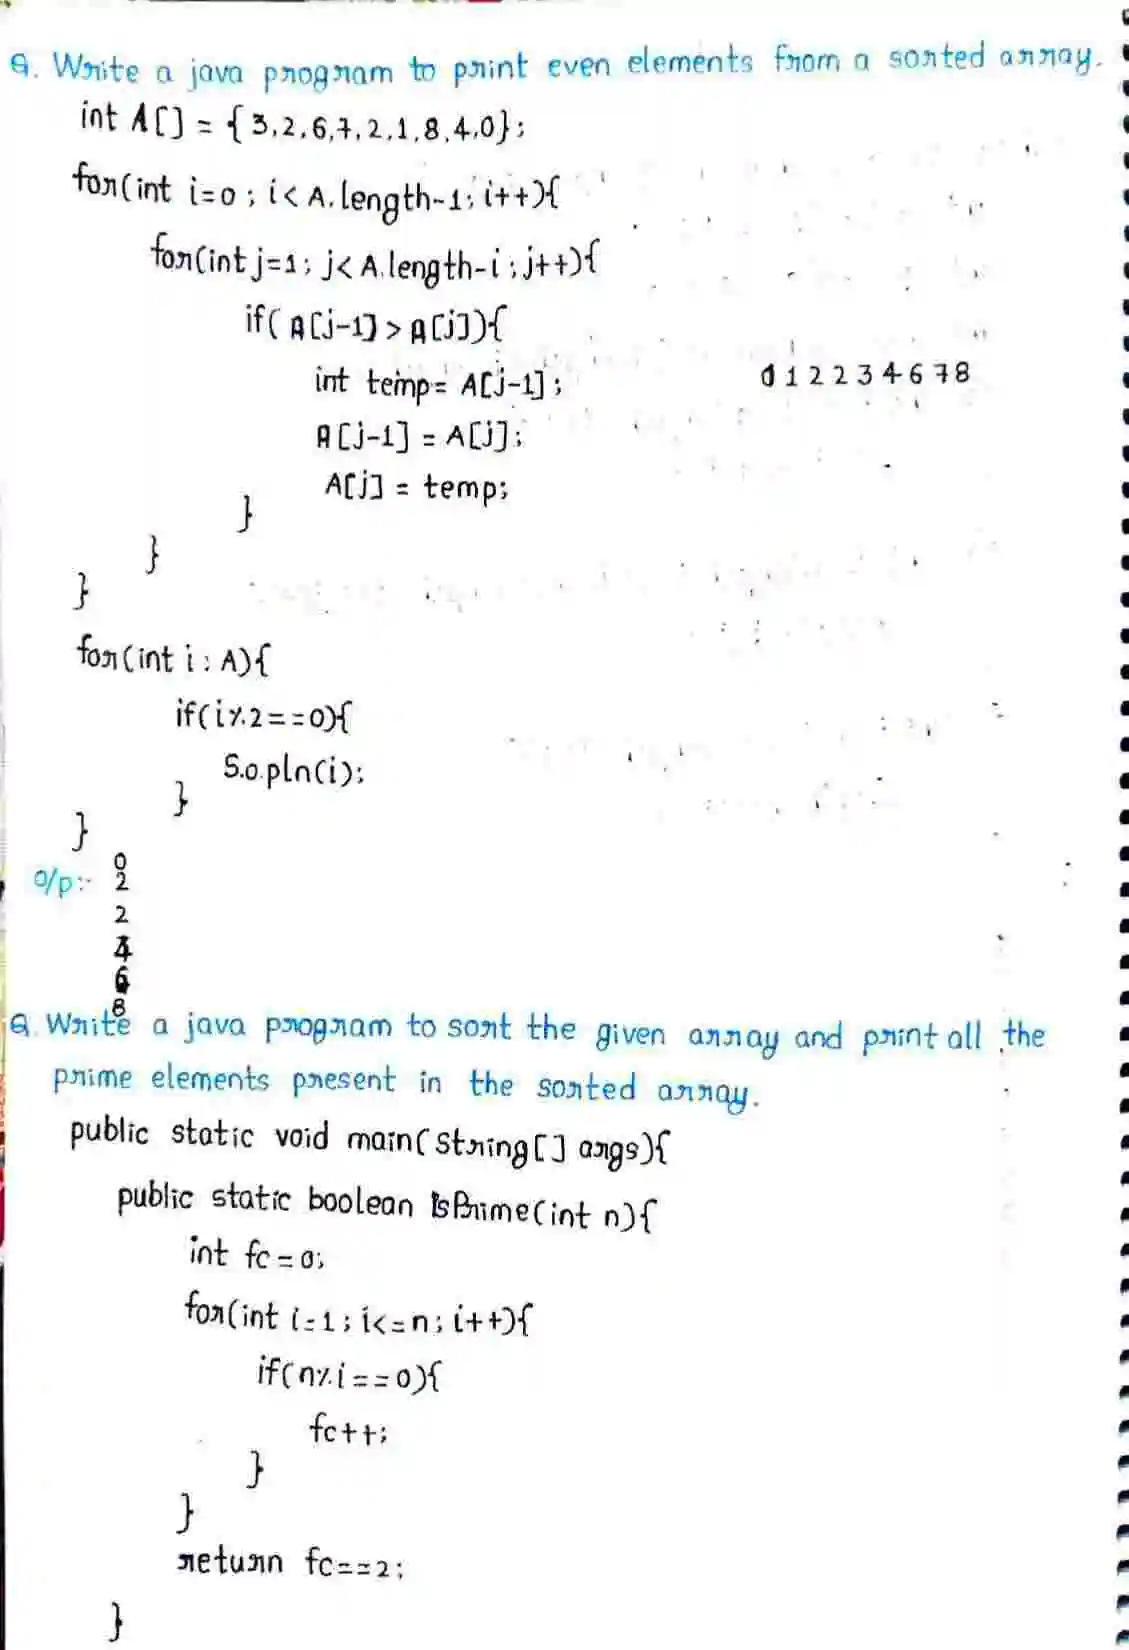 Q. Write a java program to print even elements from a sorted array.
int A[] = {3,2,6,7,2,1,8,4,0};
for(int i=0; i<A.length-1; i++){
for(int j=1; j<A.length-i; j++){
if(A[j-1]>A[j]){
int temp= A[j-1];
0 1 2 2 3 4 6 7 8
A[j-1] = A[j];
A[j] = temp;
}
}
}
for(int i : A){
if(i%2==0){
S.o.pln(i);
}
}
o/p:- 0
2
2
4
6
8
Q. Write a java program to sort the given array and print all the
prime elements present in the sorted array.
public static void main(String[] args){
public static boolean IsPrime(int n){
int fc=0;
for(int i=1; i<=n; i++){
if(n%i==0){
fc++;
}
}
return fc==2;
}